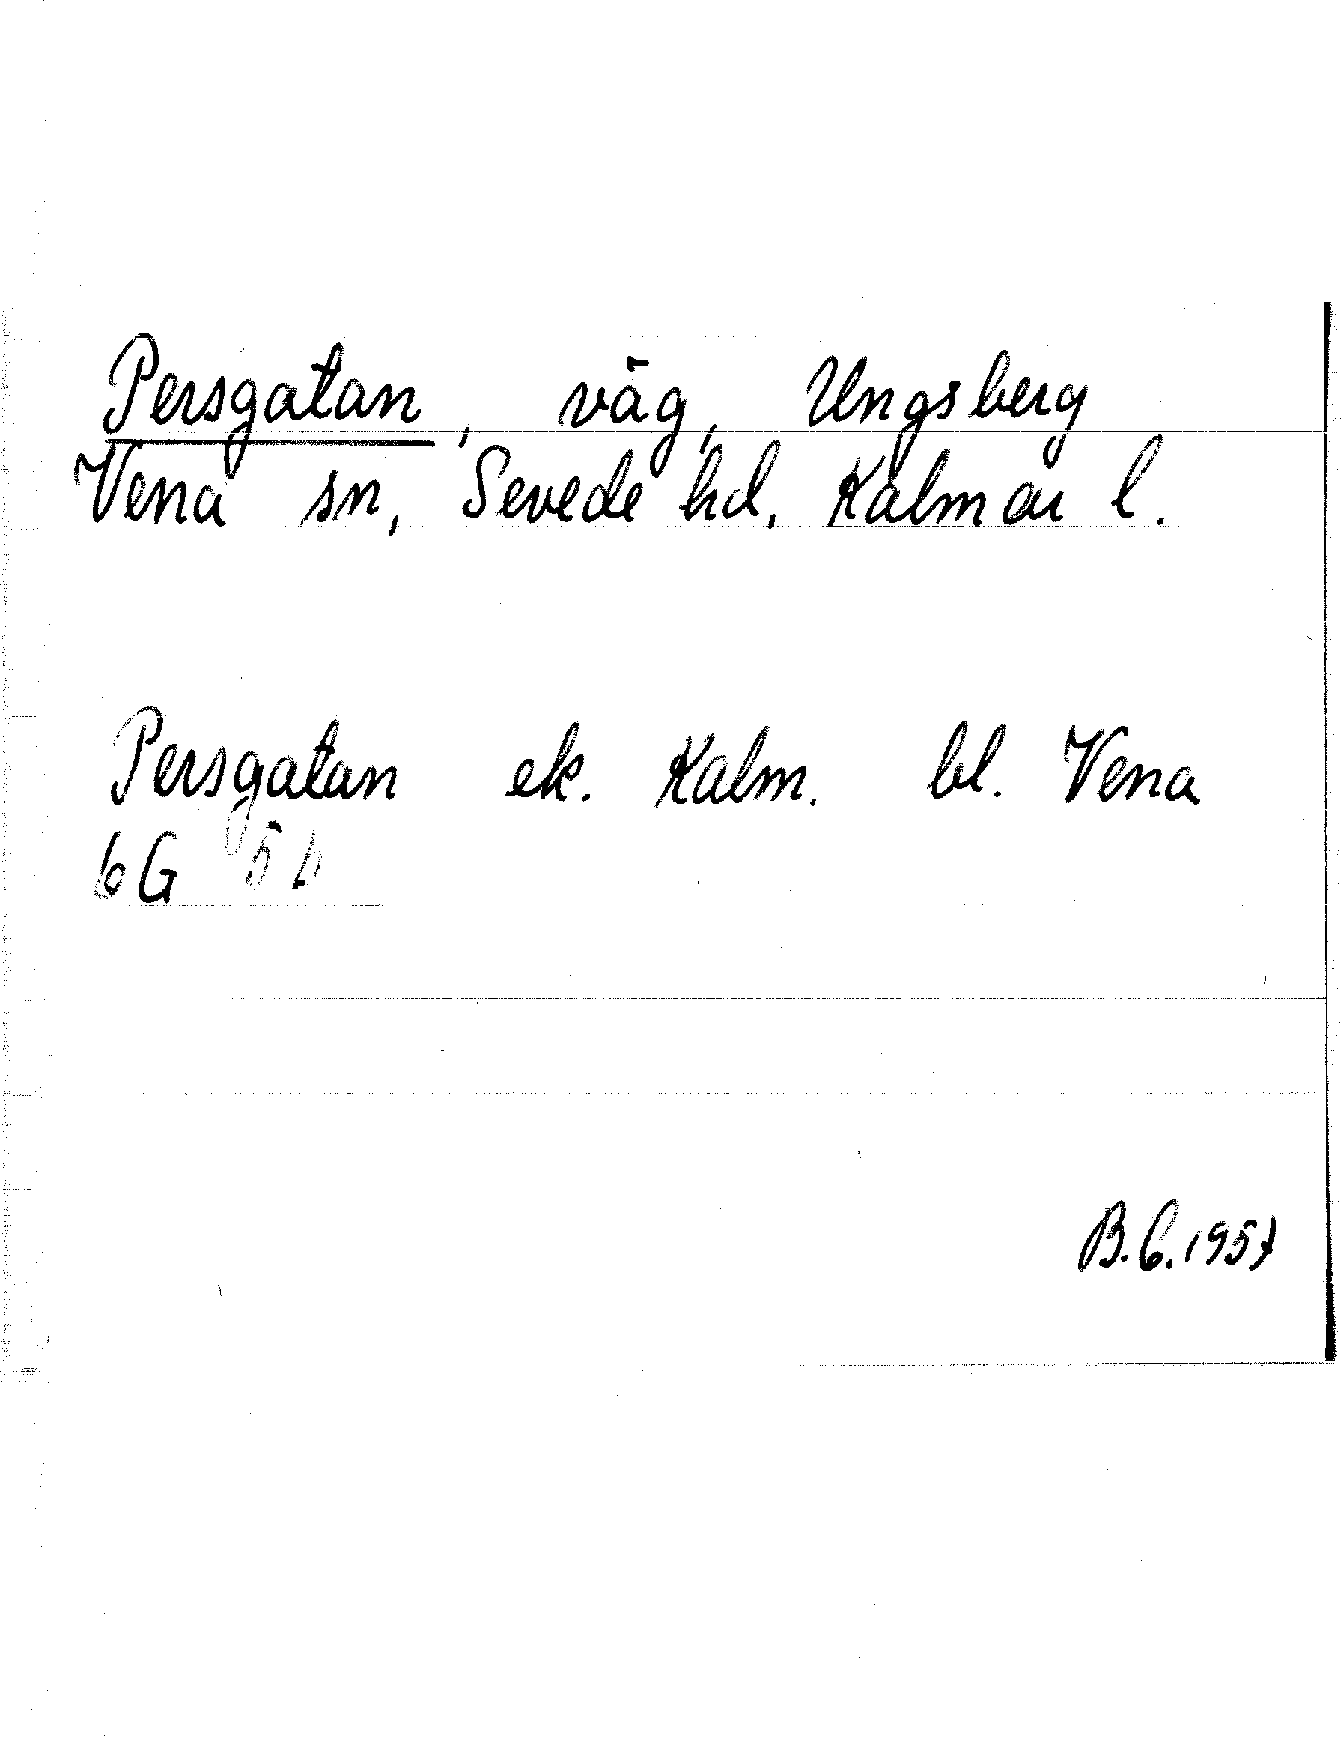 Persgatan, väg, Ungsberg
Vena sn, Sevede hd, Kalmar l.
Persgatan ek. Kalm. bl. Vena
6G 5b
B.G.1957